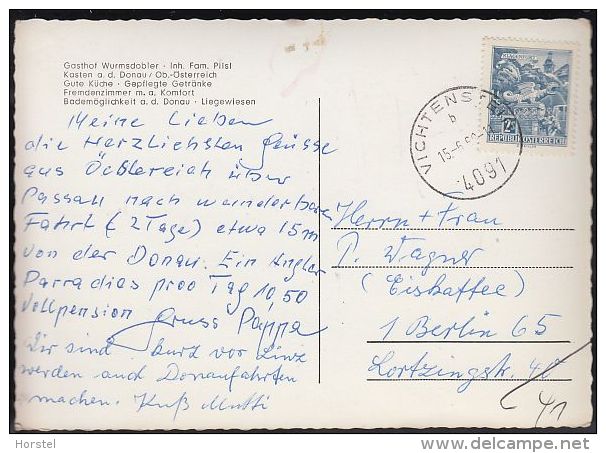 Gasthof Wurmsdobler · Inh. Fam. Pilsl
Kasten a. d. Donau / Ob.-Österreich
Gute Küche · Gepflegte Getränke
Fremdenzimmer m. a. Komfort
Bademöglichkeit a. d. Donau · Liegewiesen
Meine Lieben
die Herzlichsten Grüsse
aus Östereich über
Passau nach wunderbaren
Fahrt (2 Tage) etwa 15m
von der Donau. Ein Angler
Parradies proo Tag 10,50
Vollpension Gruss Pappa
Wir sind kurz vor Linz
werden auch Donaufahrten
machen. Kuß Mutti
KLAGENFURT
2S
REPUBLIK ÖSTERREICH
VICHTENSTEIN
b
15.-6.
4091
Herrn + Frau
P. Wagner
(Eiskaffee)
1 Berlin 65
Lortzingstr. 41
41
Horstel
www.delcampe.net